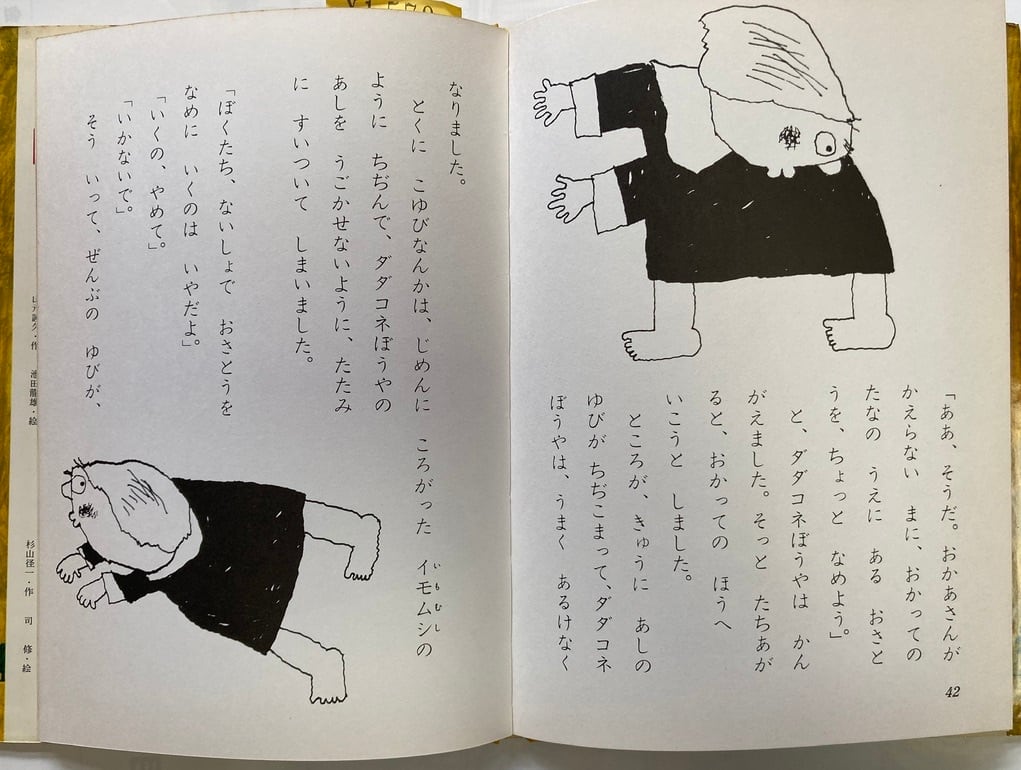 「ああ、そうだ。おかあさんが
かえらない　まに、おかっての
たなの　うえに　ある　おさと
うを、ちょっと　なめよう」
と、ダダコネぼうやは　かん
がえました。そっと　たちあが
ると、おかっての　ほうへ
いこうと　しました。
ところが、きゅうに　あしの
ゆびが　ちぢこまって、ダダコネ
ぼうやは、うまく　あるけなく
42
なりました。
とくに　こゆびなんかは、じめんに　ころがった　イモムシの
いもむし
ように　ちぢんで、ダダコネぼうやの
あしを　うごかせないように、たたみ
に　すいついて　しまいました。
「ぼくたち、ないしょで　おさとうを
なめに　いくのは　いやだよ」
「いくの、やめて」
「いかないで」
そう　いって、ぜんぶの　ゆびが、
池田龍雄・絵
杉山径一・作　司　修・絵